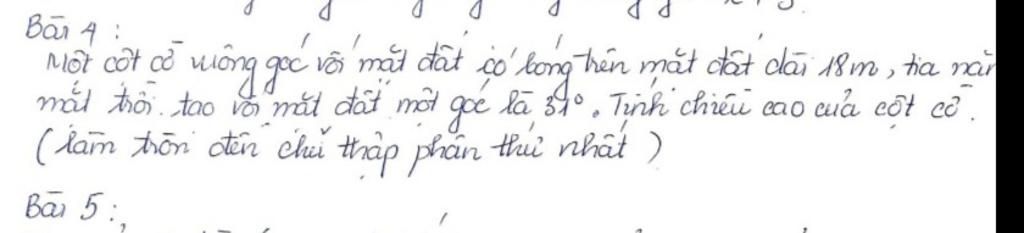 Bài 4 :
Một cột cờ vuông góc với mặt đất có bóng trên mặt đất dài 18m, tia nắn
mặt trời tạo với mặt đất một góc là °. Tính chiều cao của cột cờ.
(làm tròn đến chữ thập phân thứ nhất)
Bài 5 :